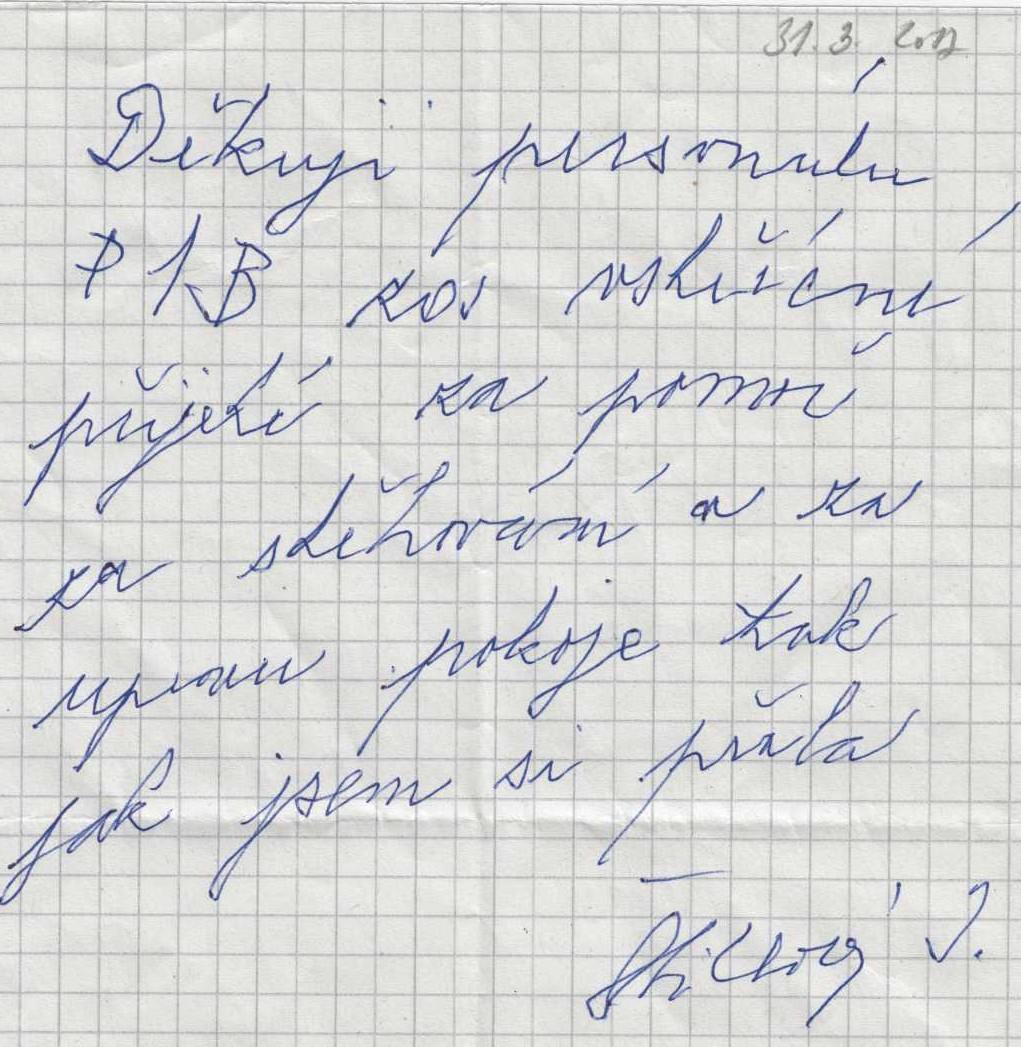 31.3. 2017
Děkuji personálu
P 1B za vstřícné
přijetí za pomoc
za stěhování a za
upravu pokoje tak
jak jsem si přála